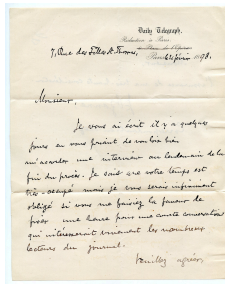 Daily Telegraph.
Rédaction à Paris
7, Rue des Filles St Thomas,
Paris le février 1898.
Monsieur,
Je vous ai écrit il y a quelques
jours en vous priant de vouloir bien
m'accorder une interview au lendemain de la
fin du procès. Je sais que votre temps est
très occupé mais je vous serais infiniment
obligé si vous me faisiez la faveur de
fixer une heure pour une courte conversation
qui intéresserait vivement les nombreux
lecteurs du journal.
Veuillez agréer